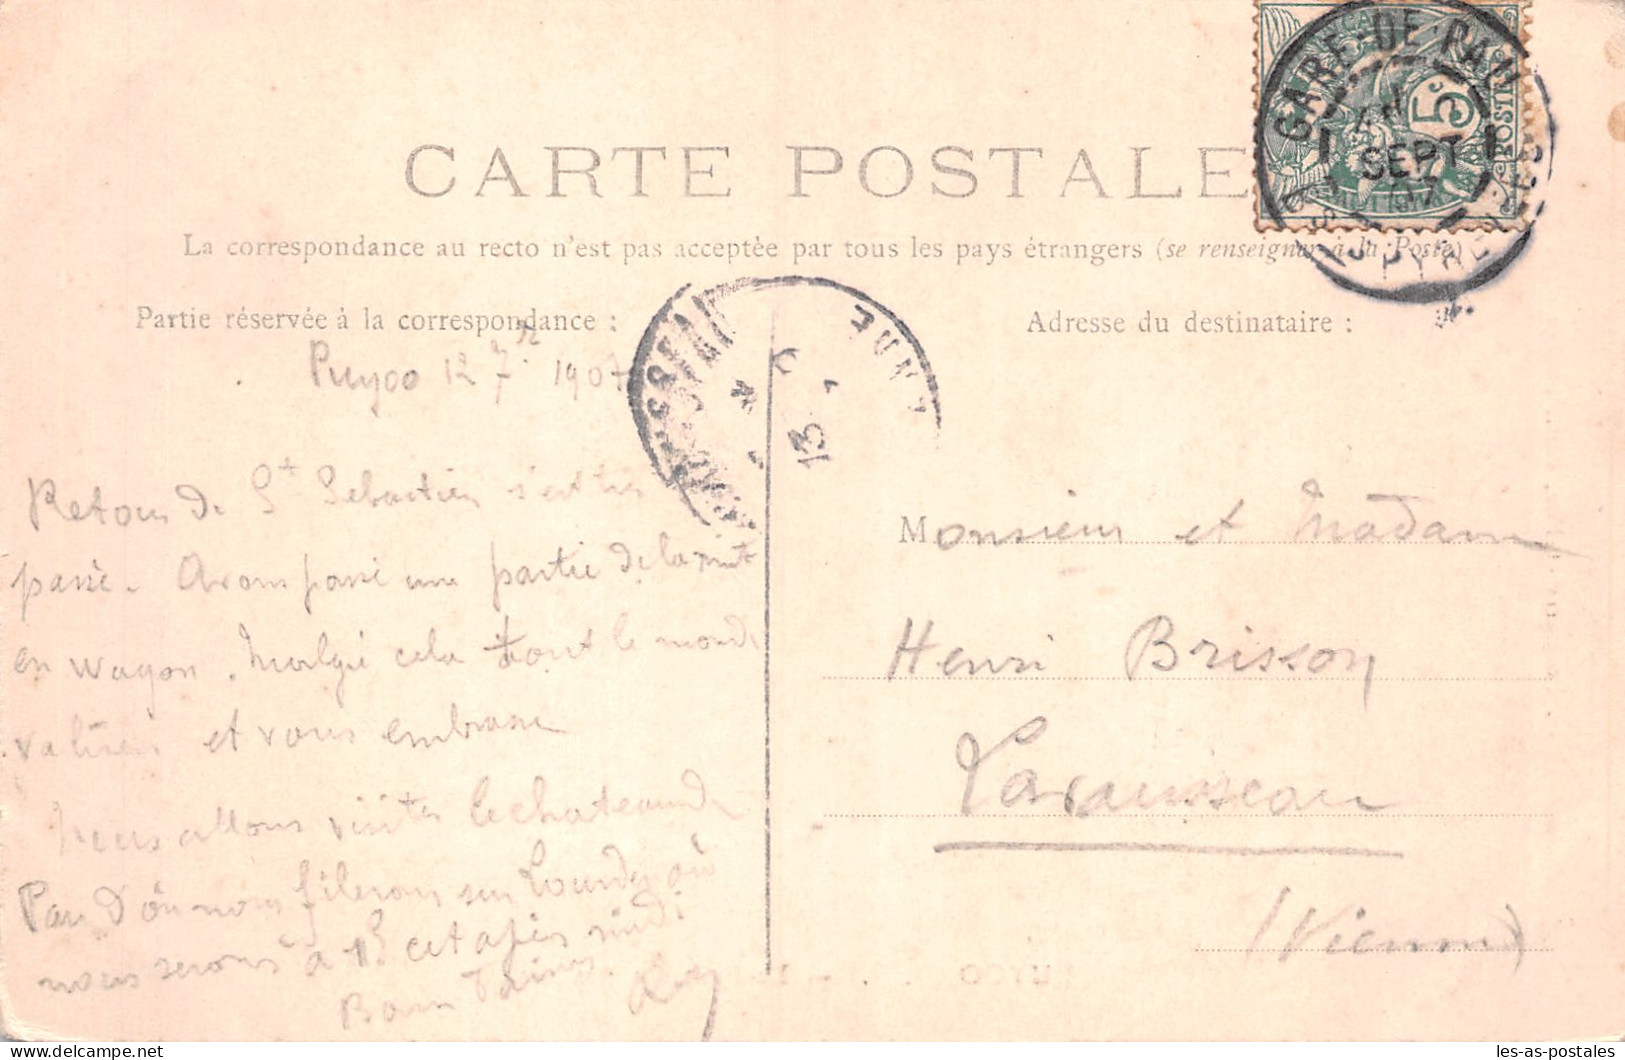 CARTE POSTALE
La correspondance au recto n'est pas acceptée par tous les pays étrangers (se renseigner à la Poste)
Partie réservée à la correspondance :
Adresse du destinataire :
GARE DE PAU
SEPT
07
5c
POSTES
13
Puyoo 12 7bre 1907
Retour de St Sébastien s'est très
passé. Avons passé une partie de la nuit
en wagon. Malgré cela tout le monde
et vous embrasse
Nous allons visiter le chateau de
Pau d'où nous filerons sur Lourdes où
nous serons à cet après midi
Monsieur et Madame
Henri Brisson
(Vienne)
les-as-postales